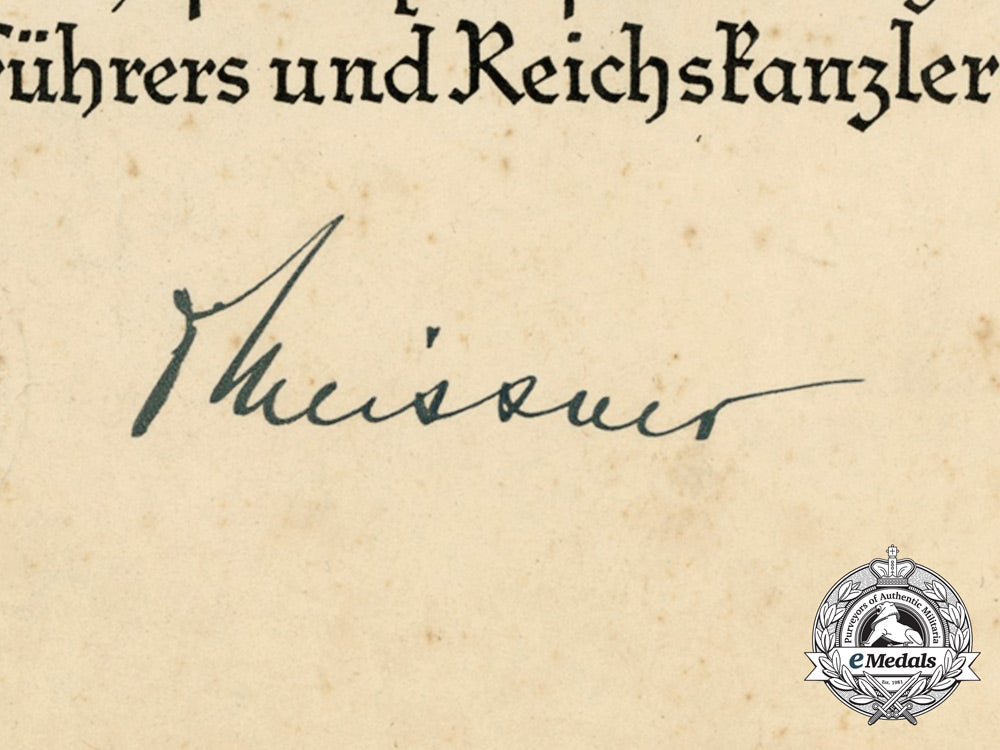 führers und Reichskanzler
Meissner
Purveyors of Authentic Militaria
eMedals
Est. 1981